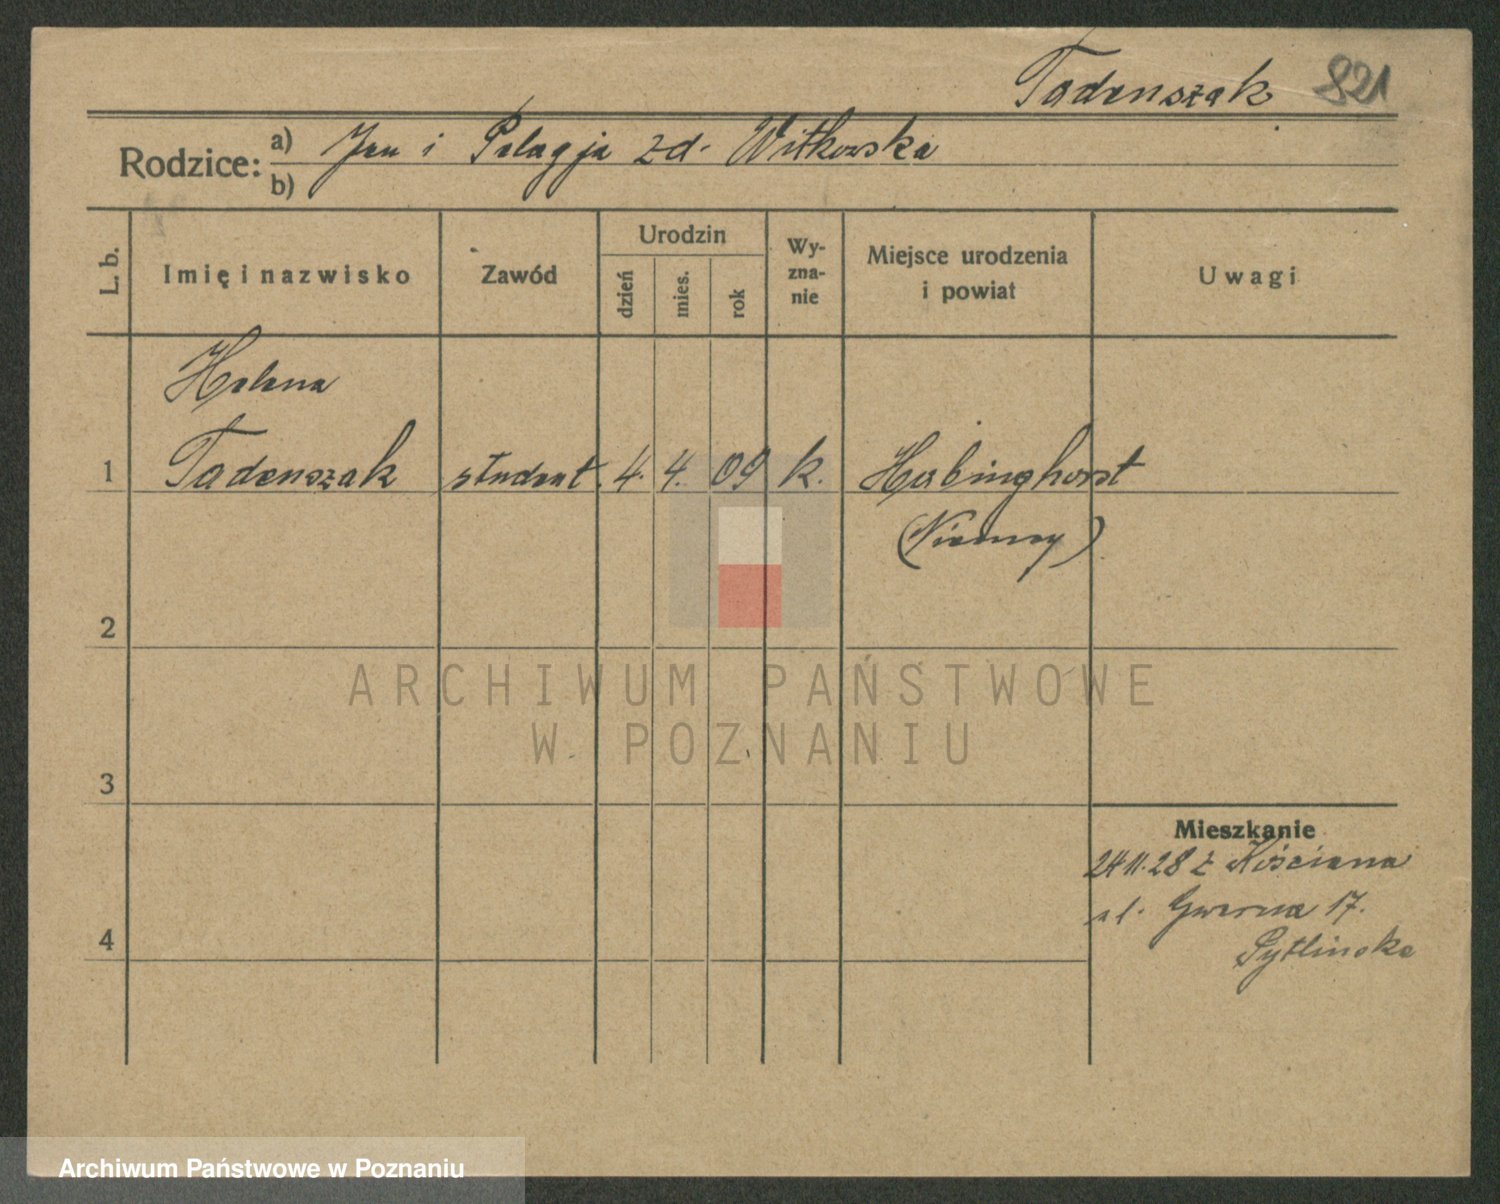 Tadenszak 821
Rodzice: a) Jan i Pelagja zd. Witkowska
b)
L. b. Imię i nazwisko Zawód Urodzin dzień mies. rok Wy-zna-nie Miejsce urodzenia i powiat Uwagi
Helena
1 Tadenszak student. 4. 4. 09 k. Habinghorst
(Niemcy)
2
ARCHIWUM PAŃSTWOWE
W POZNANIU
3
Mieszkanie
24 11. 28 z Kościana
ul. Gwarna 17.
4 Pytlinska
Archiwum Państwowe w Poznaniu